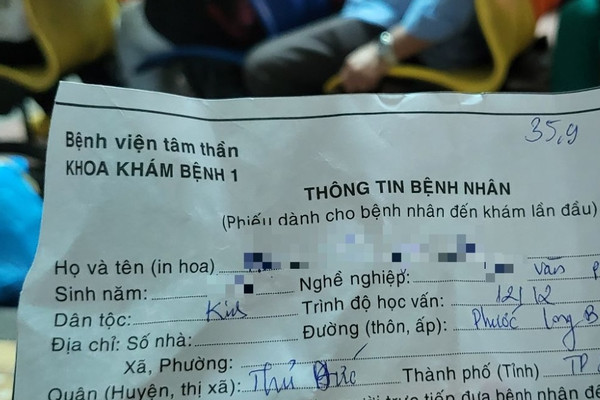 35,9
Bệnh viện tâm thần
KHOA KHÁM BỆNH 1
THÔNG TIN BỆNH NHÂN
(Phiếu dành cho bệnh nhân đến khám lần đầu)
Họ và tên (in hoa)
Sinh năm: Nghề nghiệp: văn p
Dân tộc: Kinh Trình độ học vấn: 12/12
Địa chỉ: Số nhà: Đường (thôn, ấp): Phước long B
Xã, Phường:
Quận (Huyện, thị xã): Thủ Đức Thành phố (Tỉnh) TP
ời trực tiếp đưa bệnh nhân đế